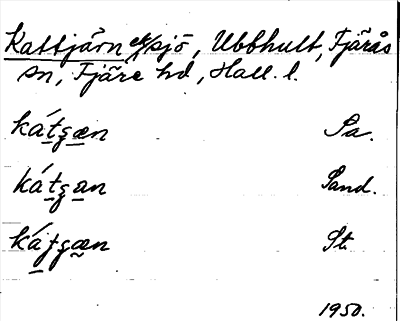 Kattjärn, sjö, Ubbhult, Fjärås
sn, Fjäre hd, Hall. l.
kátʂæn Sa.
kátʂan Sand.
káꞎgæn St.
1950.